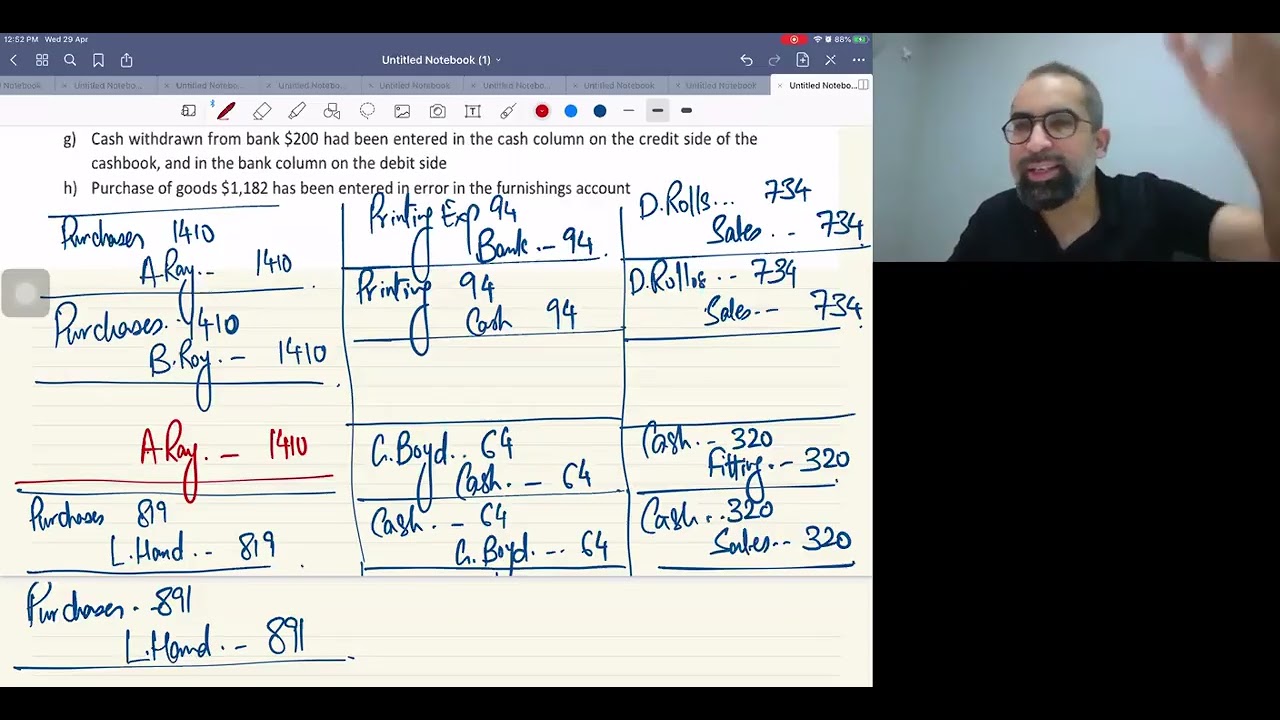 12:52 PM Wed 29 Apr
88%
Untitled Notebook (1)
Notebook
Untitled Notebo...
Untitled Notebo...
Untitled Notebo...
Untitled Notebook
Untitled Notebook
Untitled Notebo...
g) Cash withdrawn from bank $200 had been entered in the cash column on the credit side of the
cashbook, and in the bank column on the debit side
h) Purchase of goods $1,182 has been entered in error in the furnishings account
Purchases 1410
A.Ray.- 1410
Purchases. 1410
B.Roy.- 1410
A.Ray.- 1410
Purchases 819
L.Hand.- 819
Purchases. 891
L.Hand.- 891
Printing Exp 94
Bank.- 94
Printing 94
Cash 94
G.Boyd.. 64
Cash.- 64
Cash.- 64
G.Boyd.-. 64
D.Rolls... 734
Sales..- 734
D.Rollos..- 734
Sales..- 734
Cash.- 320
Fitting.- 320
Cash..320
Sales..- 320